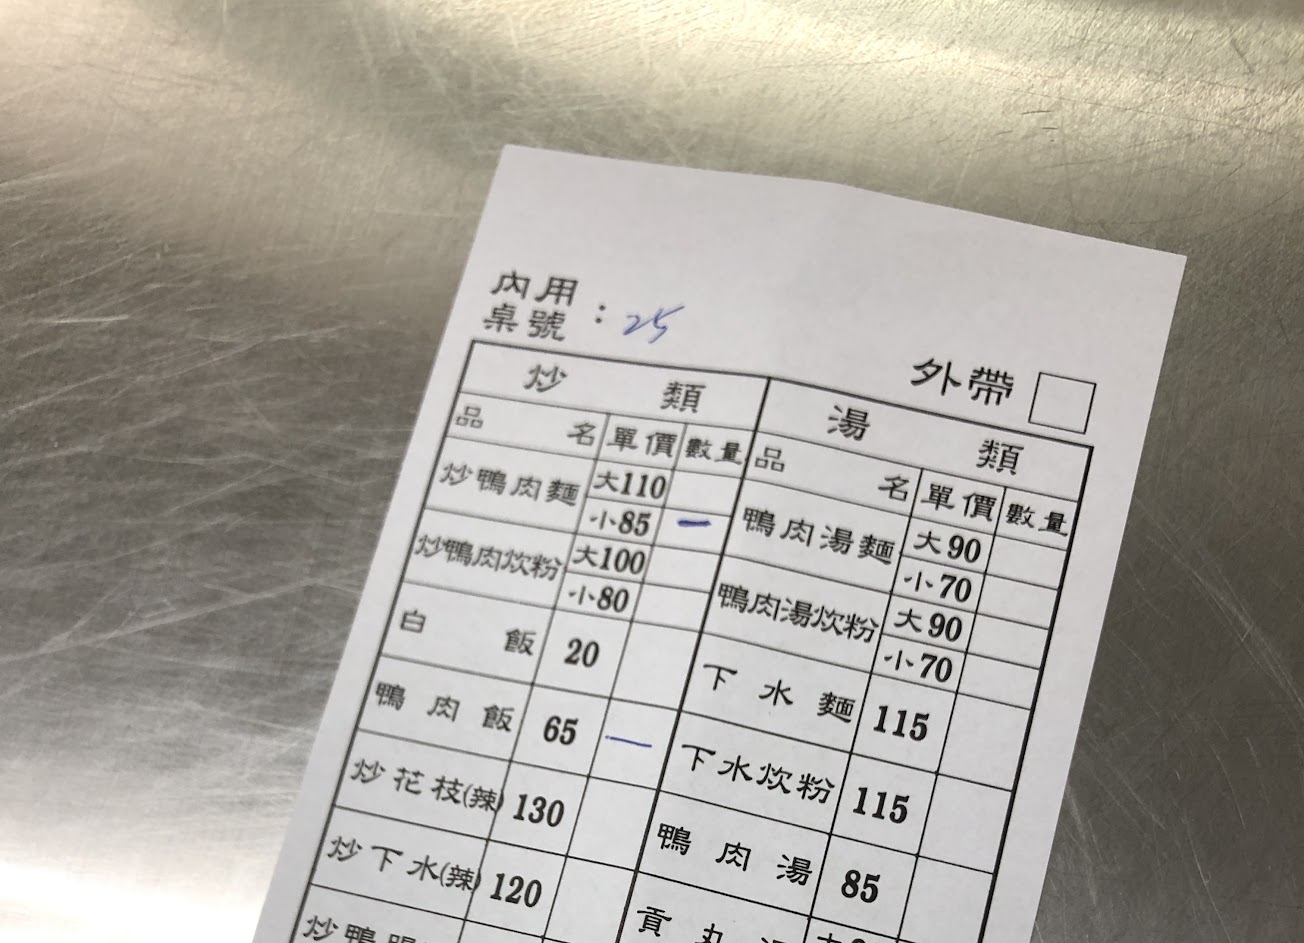 內用
桌號：25
外帶
炒類
品名 單價 數量
炒鴨肉麵 大110
小85 一
炒鴨肉炊粉 大100
小80
白飯 20
鴨肉飯 65 一
炒花枝(辣) 130
炒下水(辣) 120
炒鴨
湯類
品名 單價 數量
鴨肉湯麵 大90
小70
鴨肉湯炊粉 大90
小70
下水麵 115
下水炊粉 115
鴨肉湯 85
貢丸